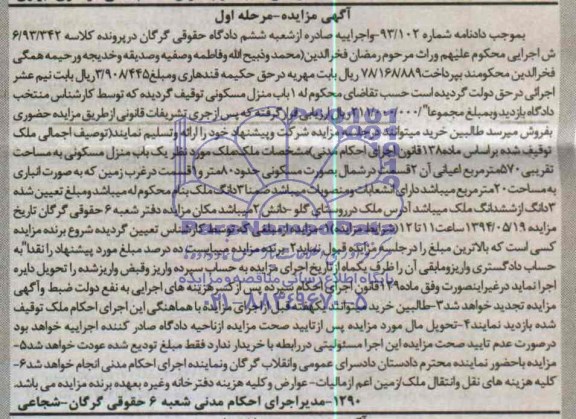 آگهی مزایده-مرحله اول
بموجب دادنامه شماره ۹۳/۱۰۲-واجراییه صادره ازشعبه ششم دادگاه حقوقی گرگان درپرونده کلاسه ۶/۹۳/۳۴۲
ش اجرایی محکوم علیهم وراث مرحوم رمضان فخرالدین(محمد وذبیح الله وفاطمه وصفیه وصدیقه وخدیجه ورحیمه همگی
فخرالدین محکومند بپرداخت۷۸/۱۶۸/۸۸۹ ریال بابت مهریه درحق حکیمه قندهاری ومبلغ۳/۹۰۸/۴۴۵ریال بابت نیم عشر
اجرائی درحق دولت گردیده است حسب تقاضای محکوم له ۱باب منزل مسکونی توقیف گردیده که توسط کارشناس منتخب
دادگاه بازدید وبمبلغ مجموعا" ریال ارزیابی قرار گرفته که پس ازجری تشریفات قانونی ازطریق مزایده حضوری
بفروش میرسد طالبین خرید میتوانند درجلسه مزایده شرکت وپیشنهاد خود را ارائه وتسلیم نمایند(توصیف اجمالی ملک
توقیف شده بر اساس ماده۱۳۸قانون اجرای احکام مدنی)مشخصات ملک:ملک مورد نظر یک باب منزل مسکونی به مساحت
تقریبی ۵۷۰مترمربع اعیانی آن ۲قسمت درشمال بصورت مسکونی حدود۸۰متر و۱قسمت درغرب زمین که به صورت انباری
به مساحت ۲۰مترمربع میباشد دارای انشعابات ومنصوبات میباشد ضمنا۳دانگ ملک بنام محکوم له میباشد ومبلغ تعیین شده
۳دانگ ازششدانگ ملک میباشد آدرس ملک درروستای گلو-دانش۲میباشد مکان مزایده دفتر شعبه ۶حقوقی گرگان تاریخ
مزایده ۱۳۹۴/۰۵/۱۹ساعت۱۱تا۱۲(شرایط مزایده)۱-مزایده ازمبلغی که توسط کارشناس تعیین گردیده شروع برنده مزایده
کسی است که بالاترین مبلغ را درجلسه مزایده قبول نماید۲-برنده مزایده میبایست ده درصد مبلغ مورد پیشنهاد را نقدا"به
حساب دادگستری واریزومابقی آن را ظرف یکماه ازتاریخ اجرای مزایده به حساب سپرده واریز وقبض واریزشده را تحویل دایره
اجرا نماید درغیراینصورت وفق ماده۱۲۹قانون اجرای احکام مدنی سپرده پس از کسر هزینه های اجرایی به نفع دولت ضبط وآگهی
مزایده تجدید خواهد شد۳-طالبین خرید میتوانند یکهفته قبل ازاجرای مزایده با هماهنگی این اجرای احکام ملک توقیف
شده بازدید نمایند۴-تحویل مال مورد مزایده پس ازتایید صحت مزایده ازناحیه دادگاه صادر کننده اجراییه خواهد بود
درصورت عدم تایید صحت مزایده این اجرا مسئولیتی دررابطه با خریدار ندارد فقط مبلغ تودیع شده عودت خواهد شد۵-
مزایده باحضور نماینده محترم دادستان دادسرای عمومی وانقلاب گرگان ونماینده اجرای احکام مدنی انجام خواهد شد۶-
کلیه هزینه های نقل وانتقال ملک ازمین اعم ازمالیات- عوارض وکلیه هزینه دفترخانه وغیره بعهده برنده مزایده می باشد.
۱۲۹۰-مدیراجرای احکام مدنی شعبه ۶ حقوقی گرگان-شجاعی
پایگاه اطلاع رسانی مناقصه و مزایده
۰۲۱-۸۸۳۴۹۶۷۰-۵